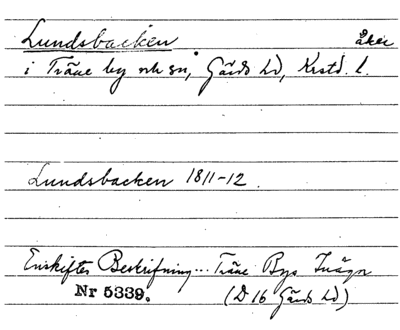 Lundsbacken åker
i Träne by och sn, Gärds hd, Krstd. l.
Lundsbacken 1811-12.
Enskiftes Beskrifning... Träne Bys Inägr
Nr 5339. (D 16 Gärds hd)